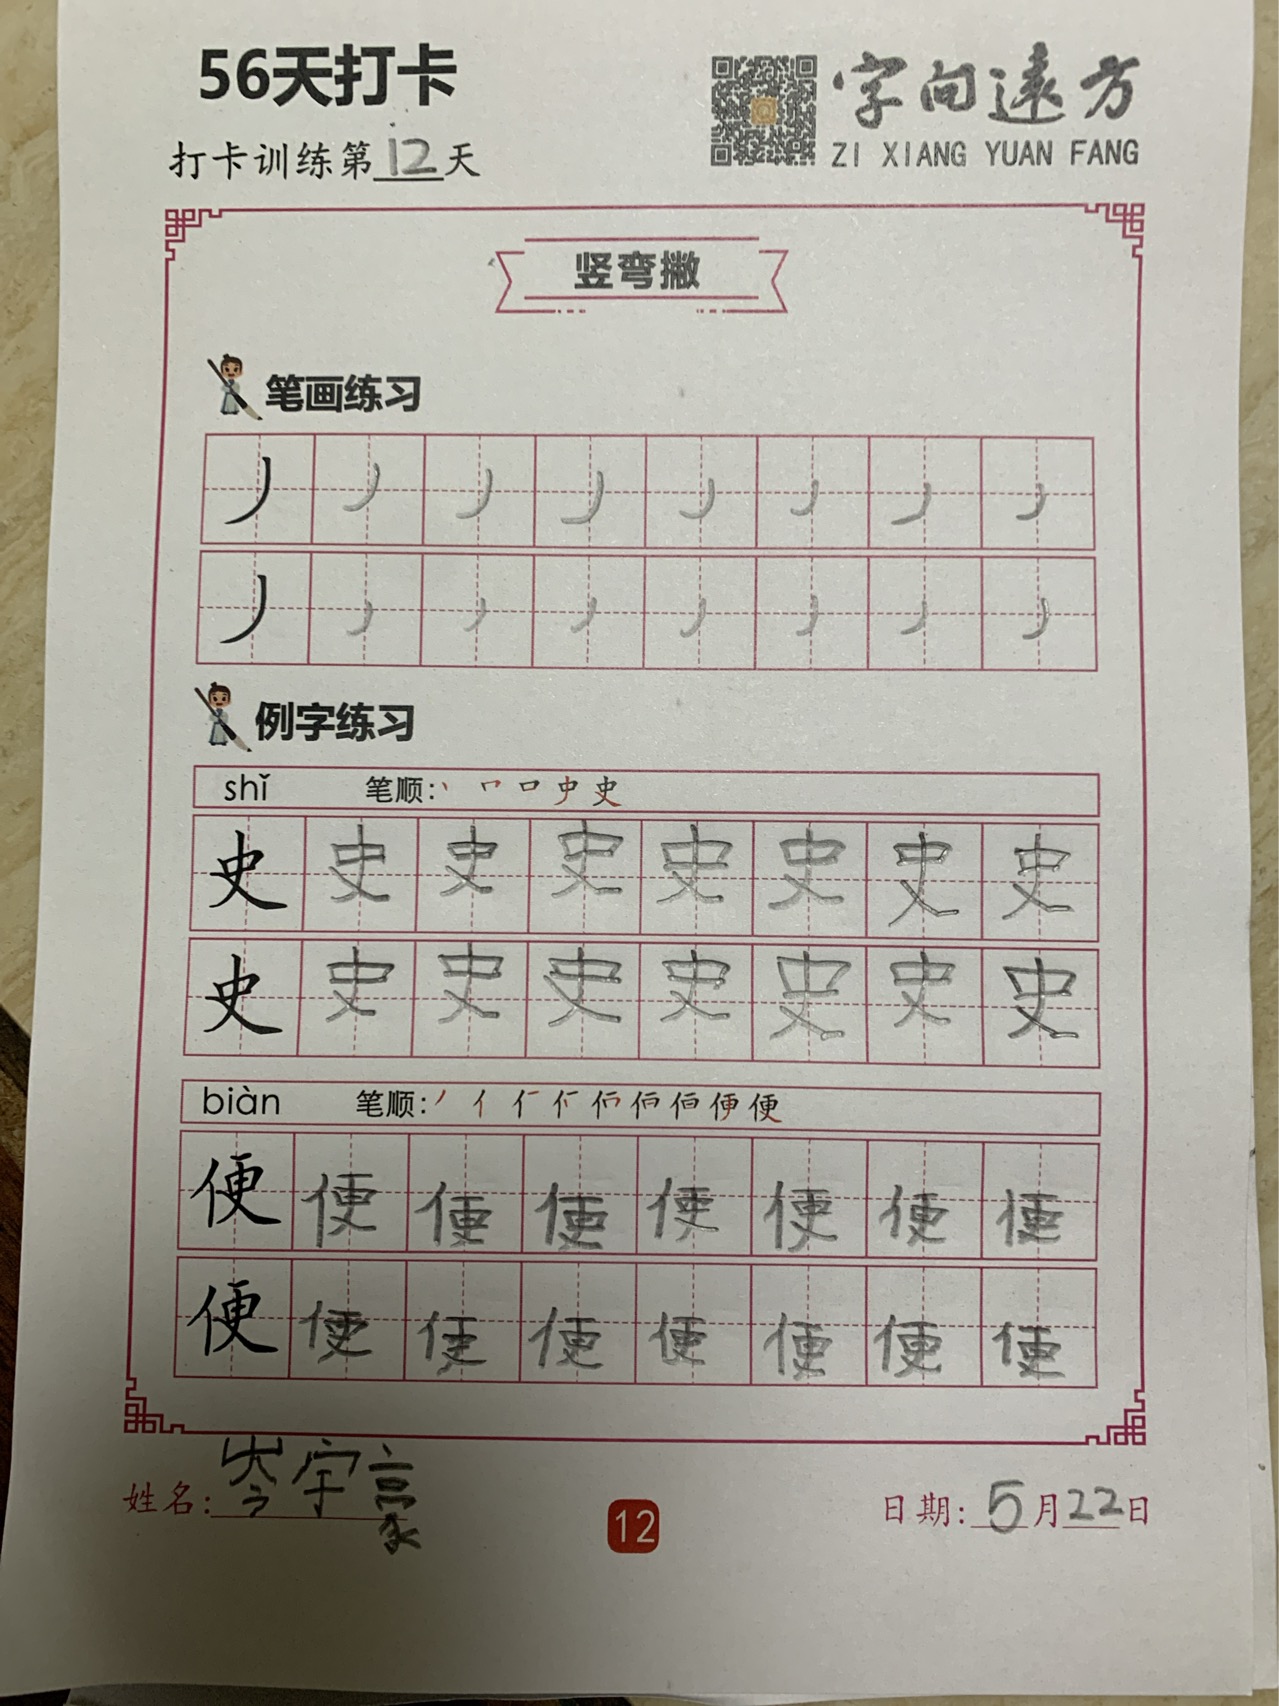 56天打卡
字向遠方
打卡训练第12天
ZI XIANG YUAN FANG
竖弯撇
笔画练习
丿丿丿丿丿丿丿丿
丿丿丿丿丿丿丿丿
例字练习
shǐ 笔顺:丶 史
史史史史史史史史
史史史史史史史史
biàn 笔顺:丿 亻 便
便便便便便便便便
便便便便便便便便
姓名:岑宇豪
12
日期:5月22日